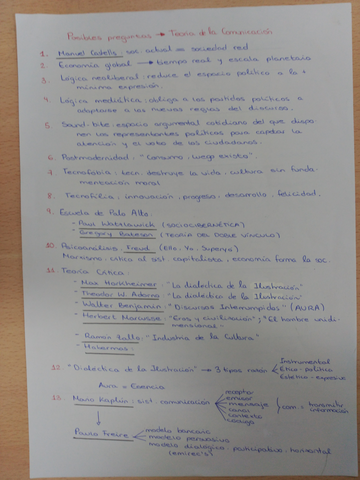 Posibles preguntas → Teoría de la Comunicación
1. Manuel Castells: soc. actual es sociedad red
2. Economía global → tiempo real y escala planetaria
3. Lógica neoliberal: reduce el espacio político a la + mínima expresión.
4. Lógica mediática: obliga a los partidos políticos a
adaptarse a las nuevas reglas del discurso.
5. Sound-bite: espacio argumental cotidiano del que dispo-
nen los representantes políticos para captar la
atención y el voto de los ciudadanos.
6. Postmodernidad: "Consumo, luego existo".
7. Tecnofobia: tecn. destruye la vida: cultura sin funda-
mentación moral
8. Tecnofilia: innovación, progreso, desarrollo, felicidad.
9. Escuela de Palo Alto:
- Paul Watzlawick (SOCIOCIBERNÉTICA)
- Gregory Bateson (TEORÍA DEL DOBLE VÍNCULO)
10. Psicoanálisis: Freud (Ello, Yo, Superyo)
Marxismo: crítica al sist. capitalista, economía forma la soc.
11. Teoría Crítica:
- Max Horkheimer: "La dialéctica de la Ilustración"
- Theodor W. Adorno: "La dialéctica de la Ilustración"
- Walter Benjamin: "Discursos Interrumpidos" (AURA)
- Herbert Marcuse: "Eros y civilización"; "El hombre unidi-
mensional"
- Ramón Zallo: "Industria de la Cultura"
- Habermas:
12. "Dialéctica de la Ilustración" → 3 tipos
Instrumental
Ético-político
Estético-expresivo
Aura = Esencia
13. Mario Kaplún: sist. comunicación
receptor
emisor
mensaje
canal
contexto
código
com = transmitir
información
Paulo Freire
modelo bancario
modelo persuasivo
modelo dialógico: participativo, horizontal
(emirecs)